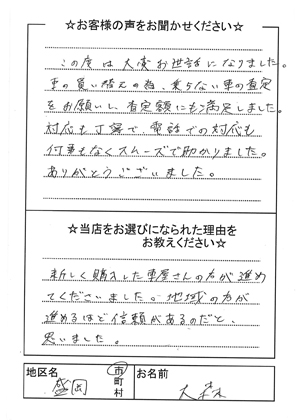 ☆お客様の声をお聞かせください☆
この度は大変お世話になりました。
車の買い替えの為、乗らない車の査定
をお願いし、査定額にも満足しました。
対応も丁寧で、電話での対応も
何事もなくスムーズで助かりました。
ありがとうございました。
☆当店をお選びになられた理由を
お教えください☆
新しく購入した車屋さんの方が進め
てくださいました。地域の方が
進めるほど信頼があるのだと、
思いました。
地区名 盛岡 市町村 お名前 大森